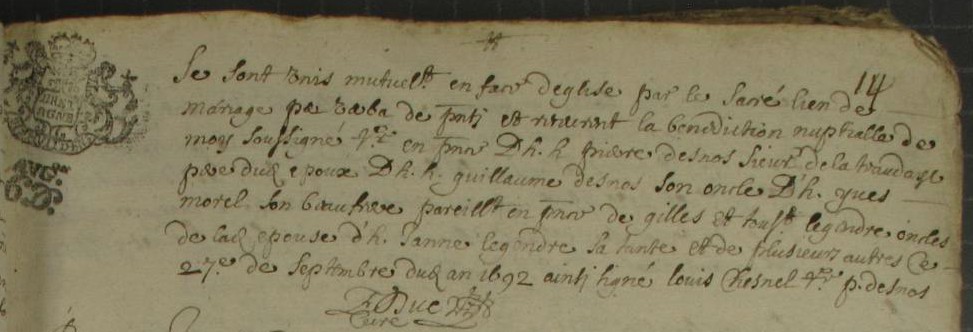 14
Se sont Unis mutuelt en face deglise par le Sacré lien de
mariage pe verba de pnti et reçurent la benediction nuptialle de
moy soussigné en pnce D h. h pierre desnos sieur de la
pere dud epoux D h. h. guillaume desnos son oncle D'h. yves
morel son beaufrere pareillt en pnce de gilles et legendre oncles
de lad epouse d'h. Janne legendre sa tante et de plusieurs autres Ce
27e de Septembre dud an 1692 ainsi signé louis Chesnel p. desnos
BRET